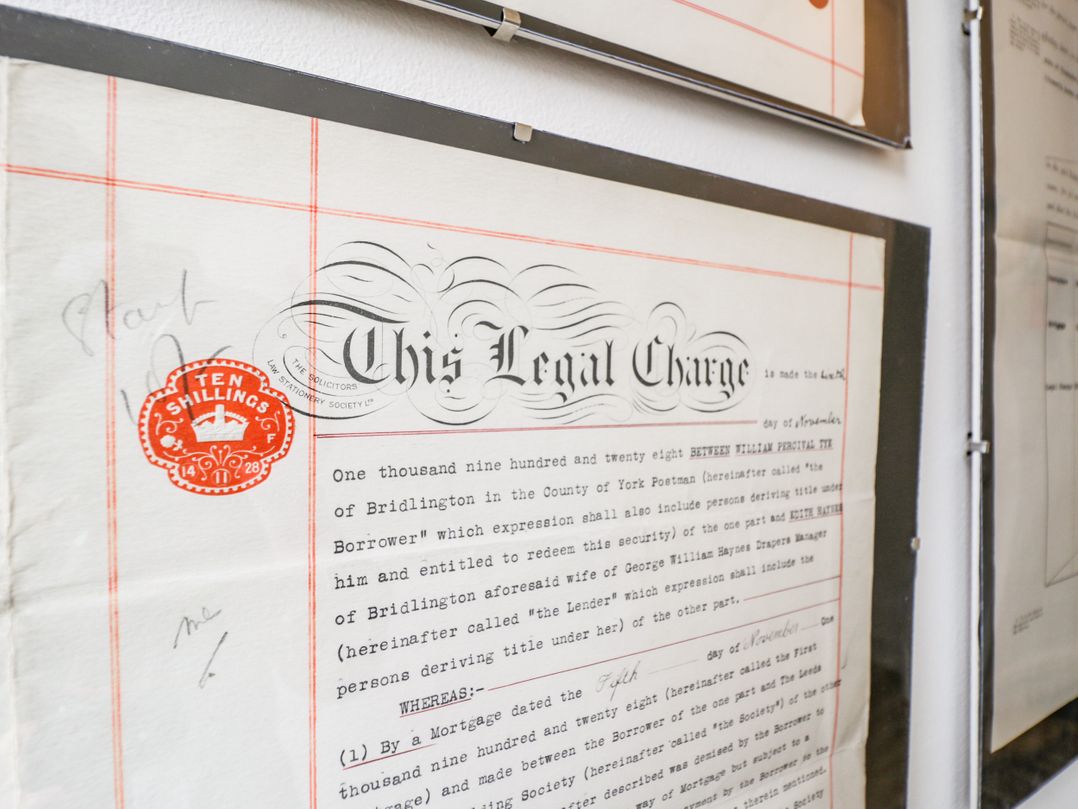 Stamp
10/-
TEN
SHILLINGS
F
14 28
11
THE SOLICITORS
LAW STATIONERY SOCIETY LTD
This Legal Charge
is made the
day of November
One thousand nine hundred and twenty eight BETWEEN WILLIAM PERCIVAL TYE
of Bridlington in the County of York Postman (hereinafter called "the
Borrower" which expression shall also include persons deriving title under
him and entitled to redeem this security) of the one part and EDITH HAYNES
of Bridlington aforesaid wife of George William Haynes Drapers Manager
(hereinafter called "the Lender" which expression shall include the
persons deriving title under her) of the other part.
WHEREAS:-
(1) By a Mortgage dated the Fifth day of November One
thousand nine hundred and twenty eight (hereinafter called the First
Mortgage) and made between the Borrower of the one part and The Leeds
Building Society (hereinafter called "the Society") of the other
after described was demised by the Borrower to
way of Mortgage but subject to a
payment by the Borrower to the
therein mentioned.
Society